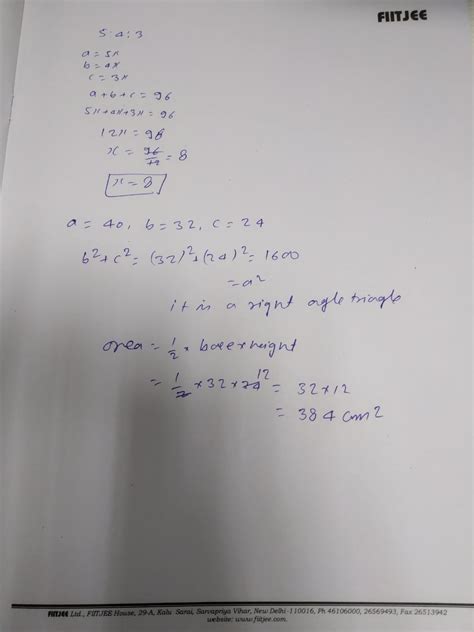 FIITJEE
5:4:3
a = 5x
b = 4x
c = 3x
a+b+c = 96
5x+4x+3x = 96
12x = 98
x = 96/12 = 8
x = 8
a = 40, b = 32, c = 24
b²+c² = (32)²+(24)² = 1600
= a²
it is a right agle triagle
area = 1/2 × base×height
= 1/2 × 32 × 24 12 = 32×12
= 384 cm2
FIITJEE Ltd., FIITJEE House, 29-A, Kalu Sarai, Sarvapriya Vihar, New Delhi-110016, Ph 46106000, 26569493, Fax 26513942
website: www.fiitjee.com.